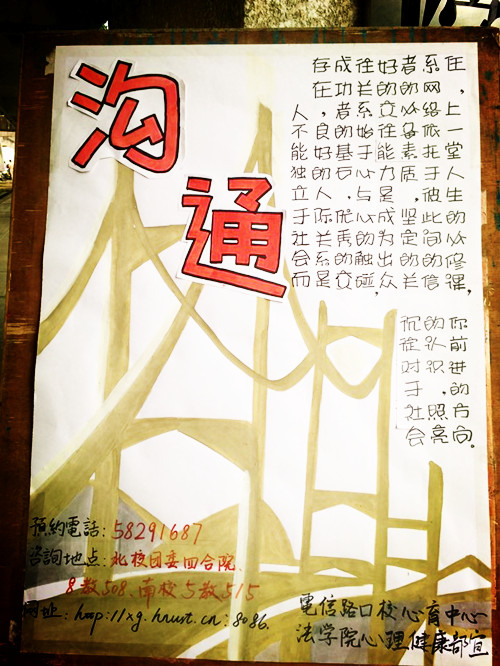 沟通
人不能独立于社会而
存在，良好的人际关系是
成功者的基石，优秀的交
往关系始于心与心的触碰，
好的交往能力是成为出众
者的必备素质，坚定的关
系网络依托于彼此间的信
任，上一堂人生的必修课，
沉淀对于社会
的认识，照亮
你前进的方向。
預約電話：58291687
咨詢地点：北校团委四合院、
8教508、南校5教515
网址：http://xg.hnust.cn:8086.
電信路口校心育中心
法学院心理健康部宣